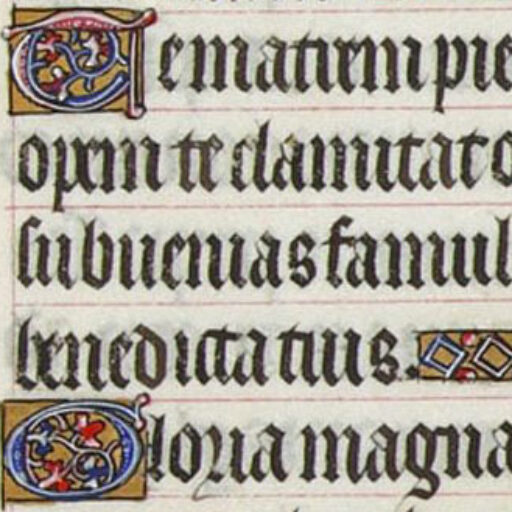 Te matrem pie
oprm te clamitat o
subuenias famul
benedicta tuis.
Gloria magna